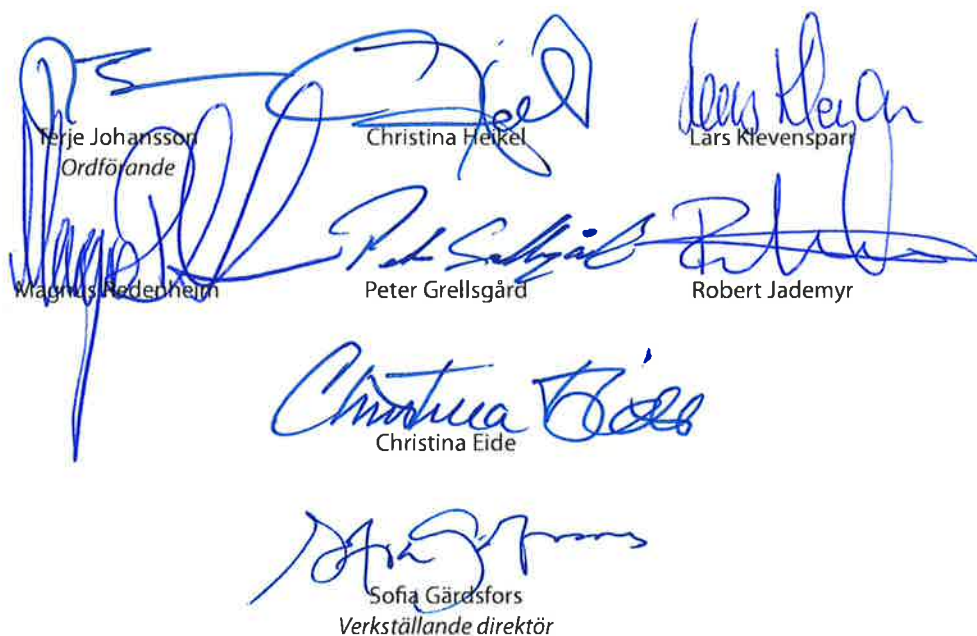 Terje Johansson Christina Heikel Lars Klevensparr
Ordförande
Magnus Redenheim Peter Grellsgård Robert Jademyr
Christina Eide
Sofia Gärdsfors
Verkställande direktör